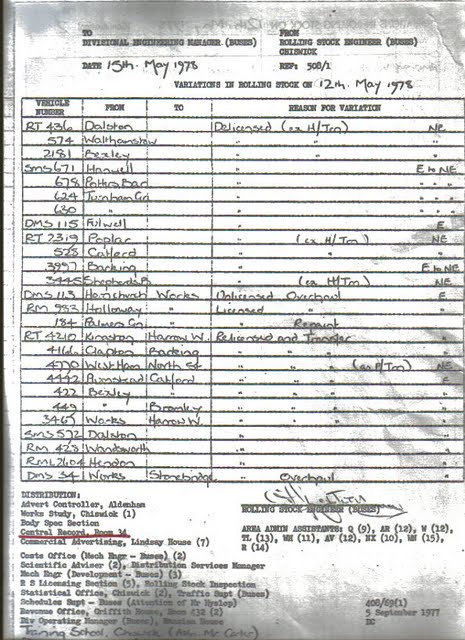 TO FROM
DIVISIONAL ENGINEERING MANAGER (BUSES) ROLLING STOCK ENGINEER (BUSES)
CHISWICK
DATE 15th. May 1978 REF: 508/1
VARIATIONS IN ROLLING STOCK ON 12th. May 1978
VEHICLE NUMBER FROM TO REASON FOR VARIATION
RT 436 Dalston Delicensed (ex H/Trn) NE
574 Walthamstow " " "
2181 Bexley " " "
SMS 671 Hanwell " E to NE
678 Potters Bar " " " "
624 Turnham Grn " " " "
630 " " " " "
DMS 115 Fulwell " E
RT 2319 Poplar " (ex H/Trn) NE
528 Catford " " "
3997 Barking " E to NE
3445 Shepherds B. " (ex H/Trn) NE
DMS 113 Hornchurch Works Delicensed Overhaul E
RM 983 Holloway " Licensed " "
184 Palmers Grn " " Repaint "
RT 4210 Kingston Harrow W. Relicensed and Transfer
416 Clapton Barking " " "
4770 West Ham North St " " " (ex P/Trn) NE
4442 Plumstead Catford " " " E
422 Bexley " " " "
449 " Bromley " " " "
3467 Works Harrow W. " " " "
SMS 572 Dalston "
RM 428 Wandsworth "
RML 2604 Hendon "
DMS 34 Works Stonebridge " Overhaul "
DISTRIBUTION:
ROLLING STOCK ENGINEER (BUSES)
Advert Controller, Aldenham
Works Study, Chiswick (1)
Body Spec Section
Central Record, Room 14
Commercial Advertising, Lindsay House (7)
AREA ADMIN ASSISTANTS: Q (9), AR (12), W (12),
TL (13), WH (11), AV (12), NX (10), WN (15),
R (14)
Costs Office (Mech Engr - Buses) (2)
Scientific Adviser (2), Distribution Services Manager
Mech Engr (Development - Buses) (3)
R S Licensing Section (5), Rolling Stock Inspection
Statistical Office, Chiswick (2), Traffic Supt (Buses)
Schedules Supt - Buses (Attention of Mr Hyslop) 408/69(1)
Revenue Office, Griffith House, Room 432 (2) 5 September 1977
Div Operating Manager (Buses), Mansion House DC
Training School, Chiswick (Attn. Mr. Carter)